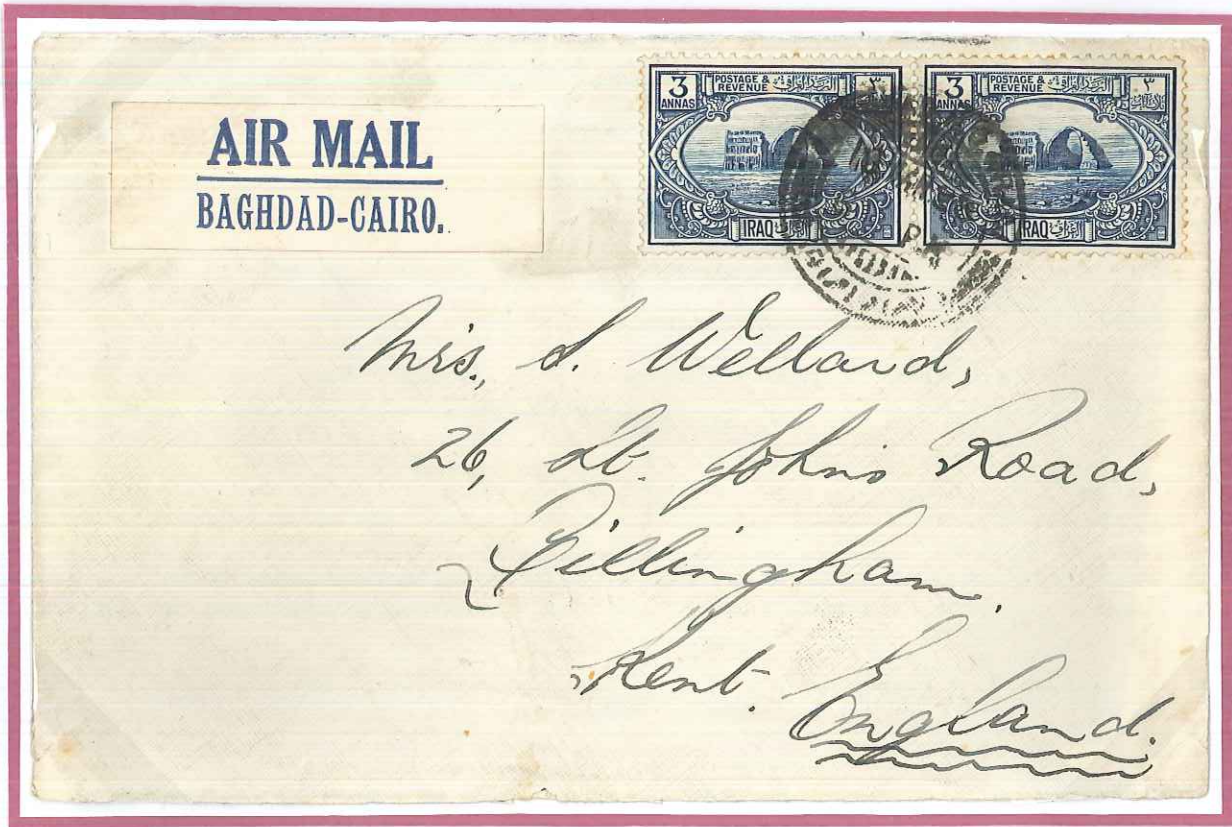 AIR MAIL
BAGHDAD-CAIRO.
3 ANNAS POSTAGE & REVENUE ٣
IRAQ
3 ANNAS POSTAGE & REVENUE ٣
IRAQ
Mrs., S. Welland,
26, St. Johns Road,
Gillingham.
Kent.
England.